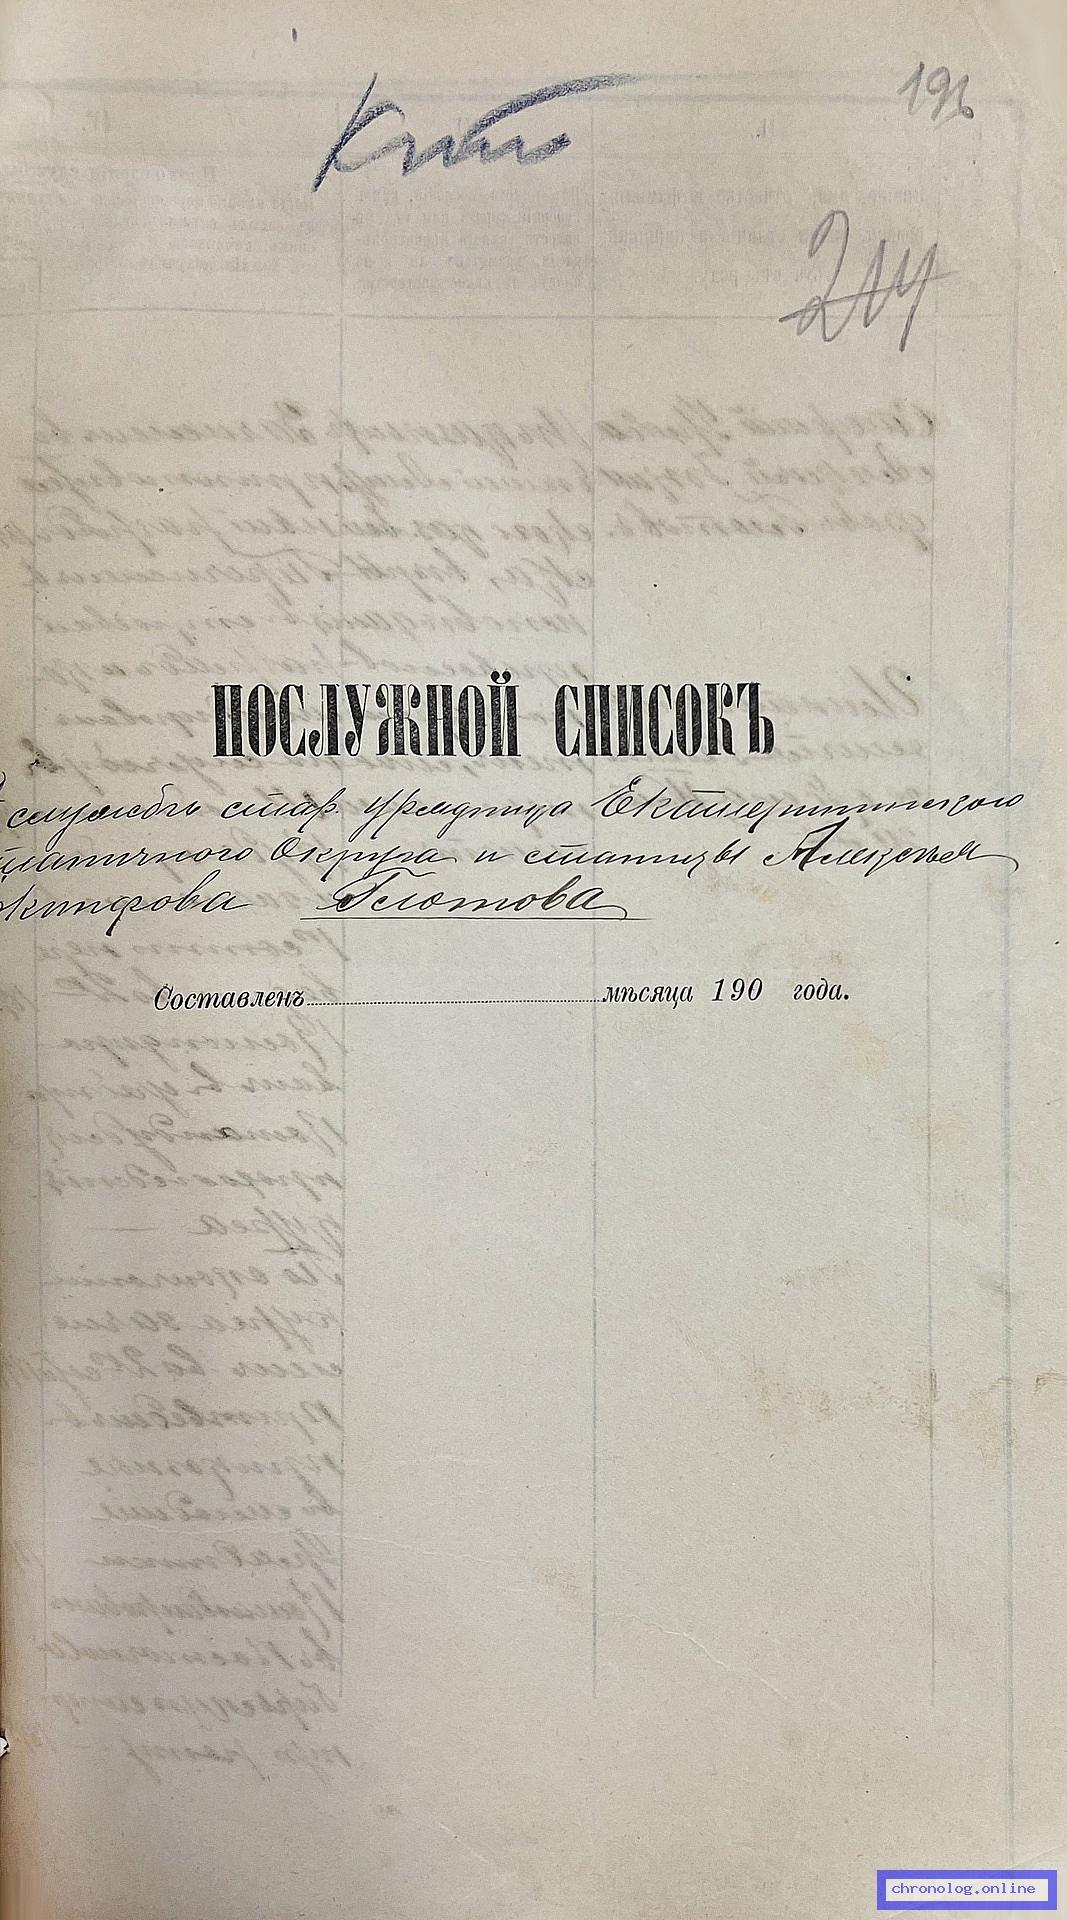 196
214
ПОСЛУЖНОЙ СПИСОКЪ
службѣ стар. урядника Екатерининского
Станичного Округа и станицы Алексея
Никифорова Глотова
Составленъ мѣсяца 190 года.
chronolog.online